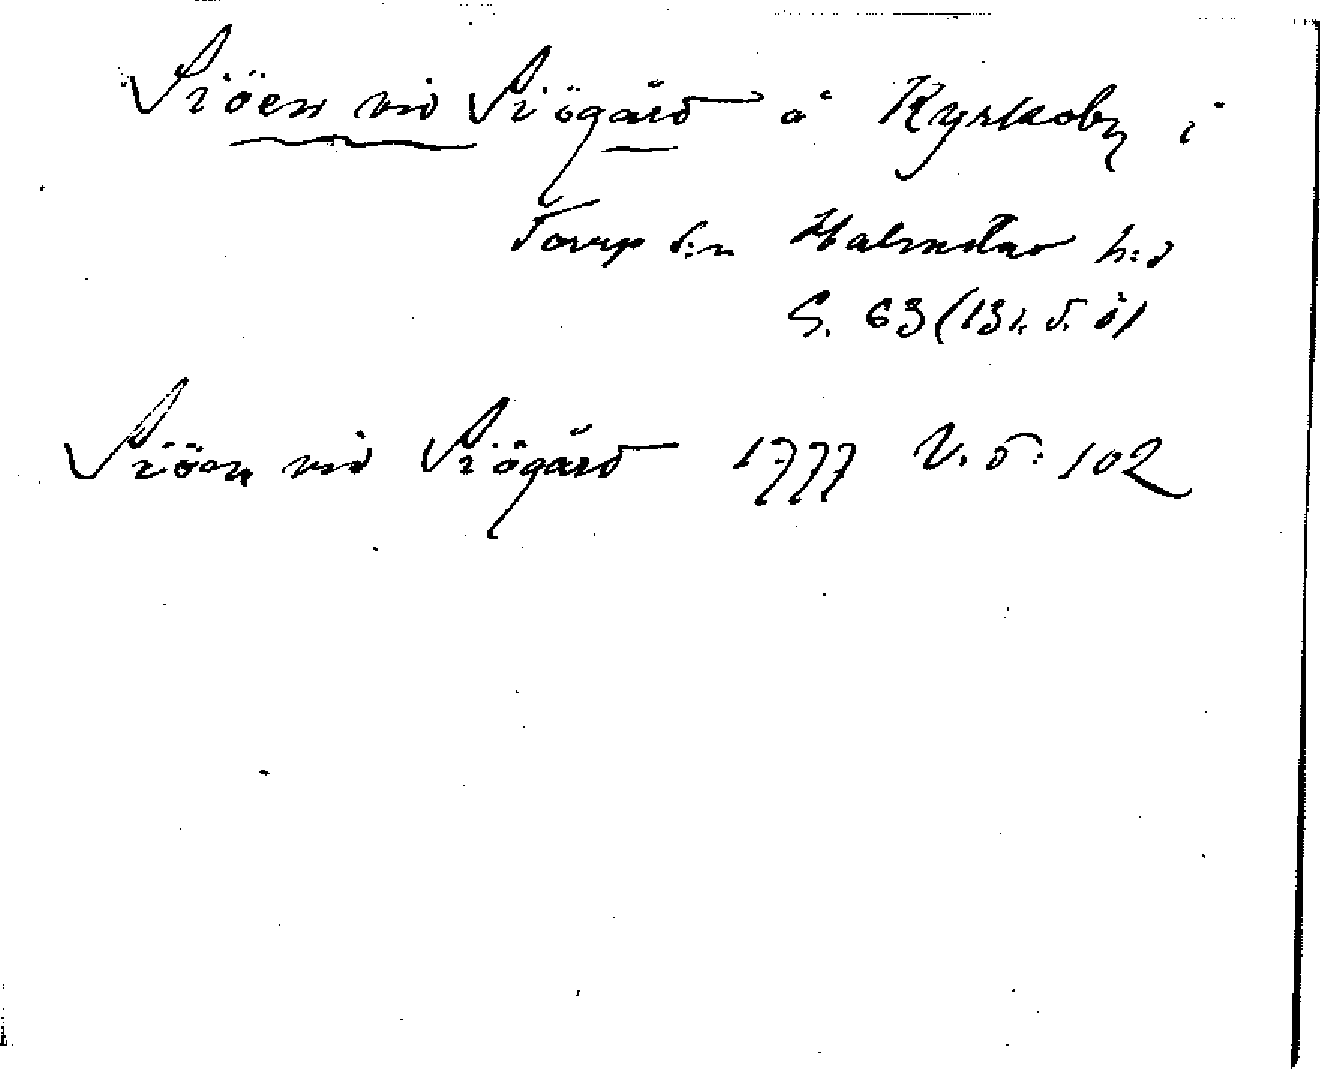 Siöen vid Siögård å Kyrkoby i
Torup s:n Halmstad h:d
S. 63 (131. S. ö)
Siöen vid Siögård 1777 V. S: 102